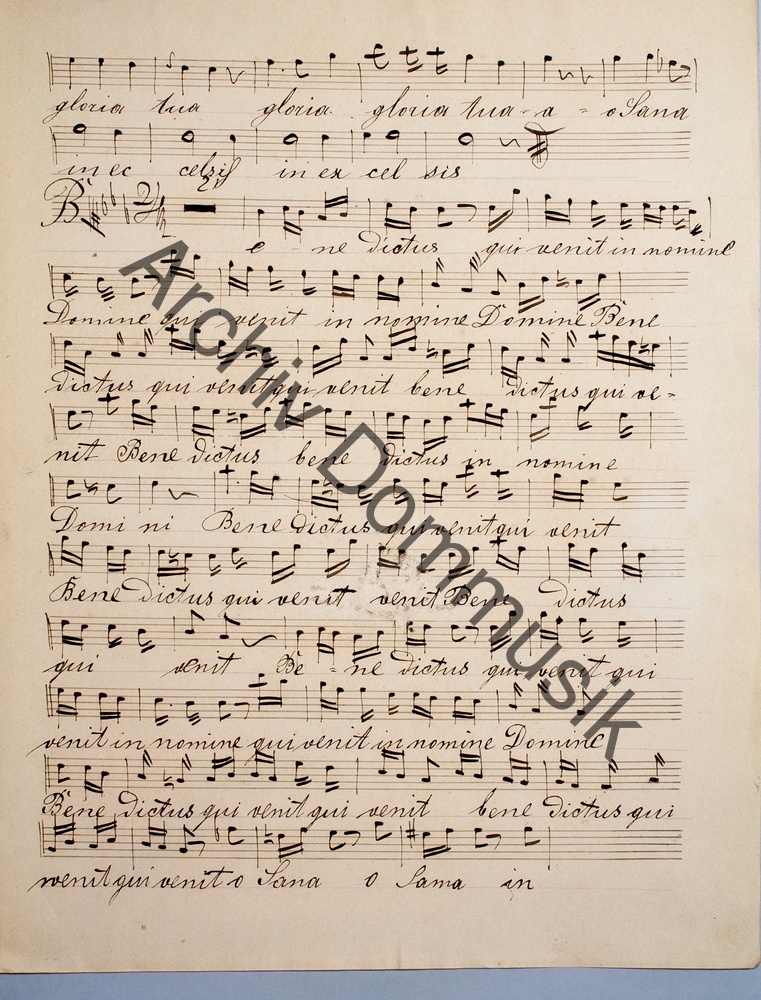 gloria tua gloria. gloria tua - a - o Sana
in ec celsis in ex cel sis
B 2
e - ne dictus qui venit in nomine
Domine qui venit in nomine Domine Bene
dictus qui venit qui venit bene dictus qui ve =
nit Bene dictus bene dictus in nomine
Domi ni Bene dictus qui venit qui venit
Bene dictus qui venit venit Bene dictus
qui venit Be = ne dictus qui venit qui
venit in nomine qui venit in nomine Domine
Bene dictus qui venit qui venit bene dictus qui
venit qui venit o Sana o Sama in
Archiv Dommusik